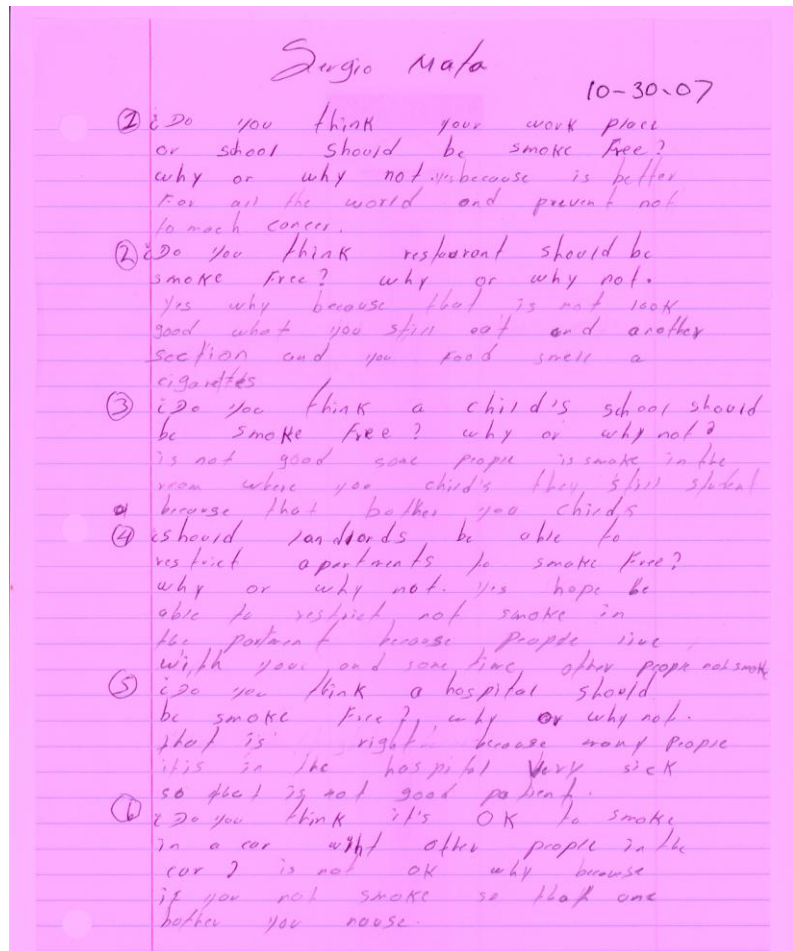 Sergio Mata
10-30-07
① ¿Do you think your work place
or school should be smoke Free?
why or why not. yes because is better
For all the world and prevent not
to mach cancer.
② ¿Do you think restaurant should be
smoke Free? why or why not.
Yes why because that is not look
good what you still eat and another
section and you Food smell a
cigarettes
③ ¿Do you think a child's school should
be smoke Free? why or why not?
is not good some people is smoke in the
room where you child's they still student
because that bother you child's
④ ¿should landlords be able to
restrict apartments to smoke Free?
why or why not. yes hope be
able to restrict not smoke in
the partment because people live
with your and some time other people not smoke
⑤ ¿Do you think a hospital should
be smoke Free?, why or why not.
that is right because many people
it is in the hospital Very sick
so that is not good patient.
⑥ ¿Do you think it's OK to smoke
in a car wiht other people in the
car? is not ok why because
if you not smoke so that one
bother you nouse.